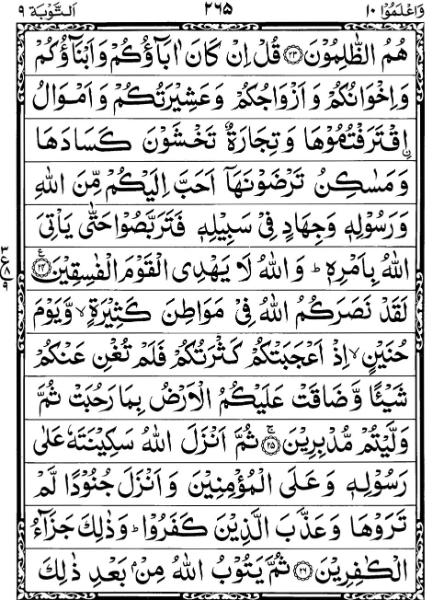 وَاعْلَمُوْٓا ١٠ ٢٦٥ اَلتَّوْبَة ٩
هُمُ الظّٰلِمُوْنَ ﴿٢٣﴾ قُلْ اِنْ كَانَ اٰبَآؤُكُمْ وَاَبْنَآؤُكُمْ
وَاِخْوَانُكُمْ وَاَزْوَاجُكُمْ وَعَشِيْرَتُكُمْ وَاَمْوَالُ
اِۨقْتَرَفْتُمُوْهَا وَتِجَارَةٌ تَخْشَوْنَ كَسَادَهَا
وَمَسٰكِنُ تَرْضَوْنَهَآ اَحَبَّ اِلَيْكُمْ مِّنَ اللّٰهِ
وَرَسُوْلِهٖ وَجِهَادٍ فِيْ سَبِيْلِهٖ فَتَرَبَّصُوْا حَتّٰى يَاْتِيَ
اللّٰهُ بِاَمْرِهٖ ؕ وَاللّٰهُ لَا يَهْدِى الْقَوْمَ الْفٰسِقِيْنَ ﴿٢٤﴾ ع
لَقَدْ نَصَرَكُمُ اللّٰهُ فِيْ مَوَاطِنَ كَثِيْرَةٍ ۙ وَّيَوْمَ
حُنَيْنٍ ۙ اِذْ اَعْجَبَتْكُمْ كَثْرَتُكُمْ فَلَمْ تُغْنِ عَنْكُمْ
شَيْـًٔا وَّضَاقَتْ عَلَيْكُمُ الْاَرْضُ بِمَا رَحُبَتْ ثُمَّ
وَلَّيْتُمْ مُّدْبِرِيْنَ ﴿٢٥﴾ۚ ثُمَّ اَنْزَلَ اللّٰهُ سَكِيْنَتَهٗ عَلٰى
رَسُوْلِهٖ وَعَلَى الْمُؤْمِنِيْنَ وَاَنْزَلَ جُنُوْدًا لَّمْ
تَرَوْهَا وَعَذَّبَ الَّذِيْنَ كَفَرُوْا ؕ وَذٰلِكَ جَزَآءُ
الْكٰفِرِيْنَ ﴿٢٦﴾ ثُمَّ يَتُوْبُ اللّٰهُ مِنْۢ بَعْدِ ذٰلِكَ